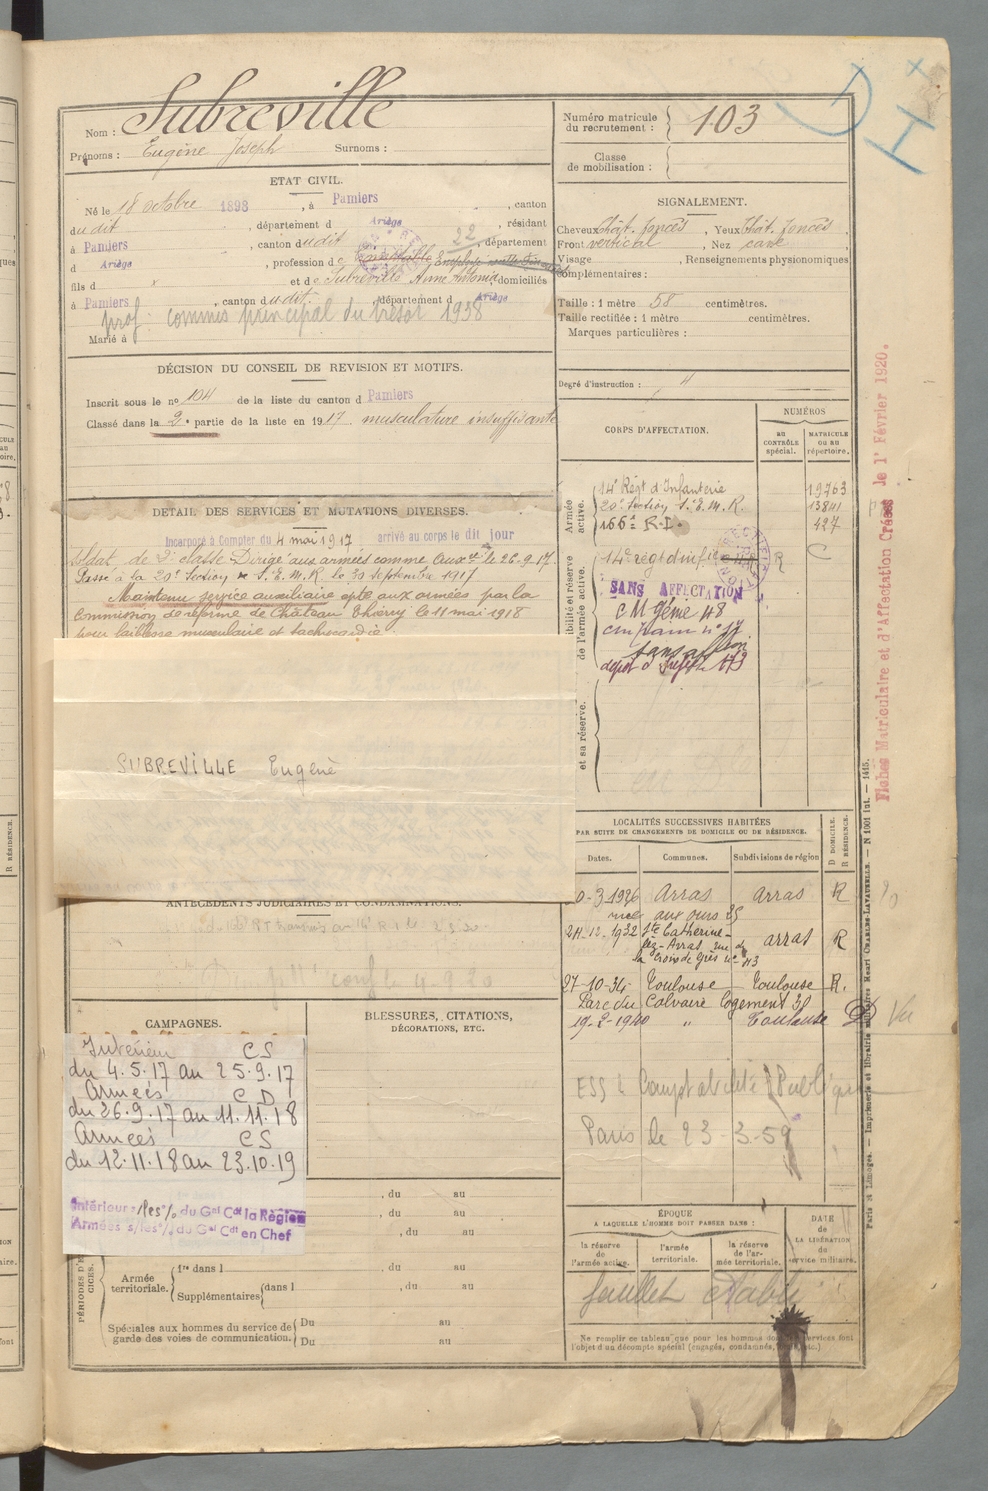 Nom : Subreville
Prénoms : Eugène Joseph Surnoms :
Numéro matricule du recrutement : 103
Classe de mobilisation :
ETAT CIVIL.
Né le 18 octobre 1898, à Pamiers, canton
dudit, département d Ariège, résidant
à Pamiers, canton dudit, département
d Ariège, profession d
fils d x et de Subreville Anne Antonia domiciliés
à Pamiers, canton dudit, département d Ariège
prof: commis principal du trésor 1938
Marié à
SIGNALEMENT.
Cheveux Chât. foncés, Yeux Chât. foncés,
Front vertical, Nez cave
Visage, Renseignements physionomiques
complémentaires :
Taille : 1 mètre 58 centimètres.
Taille rectifiée : 1 mètre centimètres.
Marques particulières :
Degré d'instruction : 4
DÉCISION DU CONSEIL DE REVISION ET MOTIFS.
Inscrit sous le no 104 de la liste du canton d Pamiers
Classé dans la 2e partie de la liste en 1917 musculature insuffisante
DETAIL DES SERVICES ET MUTATIONS DIVERSES.
Incorporé à Compter du 4 mai 1917 arrivé au corps le dit jour
Soldat de 2e classe Dirigé aux armées comme Auxre le 26.9.17.
Passé à la 20e Section S.E.M.R. le 30 septembre 1917
Maintenu service auxiliaire apte aux armées par la
Commission de réforme de Château Thierry le 11 mai 1918
pour faiblesse musculaire et tachycardie.
SUBREVILLE Eugène
CORPS D'AFFECTATION.
NUMÉROS
AU CONTRÔLE spécial.
MATRICULE OU AU répertoire.
Armée active.
14e Régt d'Infanterie 19763
20e Section S.E.M.R. 13841
166e R.I. 427
14e régt d'inf R C
SANS AFFECTATION
C M Génie 48
sans aff
et sa réserve.
LOCALITÉS SUCCESSIVES HABITÉES
PAR SUITE DE CHANGEMENTS DE DOMICILE OU DE RÉSIDENCE.
Dates. Communes. Subdivisions de région
D DOMICILE.
R RÉSIDENCE.
0-3.1926 Arras Arras R
rue aux ours 35
24-12-1932 Ste Catherine-
lez-Arras, rue de arras R
la Croix de Grès no 43
27-10-34 Toulouse Toulouse R.
Parc du Calvaire Logement 38
19-2-1940 " Toulouse D Vu
Comptabilité Publique
Paris le 23-3-59
ANTÉCÉDENTS JUDICIAIRES ET CONDAMNATIONS.
CAMPAGNES.
Intérieur CS
du 4.5.17 au 25.9.17
Armées CD
du 26.9.17 au 11.11.18
Armées CS
du 12.11.18 au 23.10.19
Intérieur s/les % du Gal Cdt la Région
Armées s/les % du Gal Cdt en Chef
BLESSURES, CITATIONS,
DÉCORATIONS, ETC.
, du au
, du au
, du au
Armée territoriale. 1re dans l , du au
Supplémentaires dans l , du au
Spéciales aux hommes du service de
garde des voies de communication. Du au
Du au
ÉPOQUE
A LAQUELLE L'HOMME DOIT PASSER DANS :
la réserve de l'armée active.
l'armée territoriale.
la réserve de l'armée territoriale.
DATE de LA LIBÉRATION du service militaire.
feuillet établi
Ne remplir ce tableau que pour les hommes dont les services font
l'objet d'un décompte spécial (engagés, condamnés, etc.)
Fiches Matriculaire et d'Affectation Créées le 1er Février 1920.
Paris et Limoges. — Imprimerie et librairie militaires Henri CHARLES-LAVAUZELLE. — N 1001 Int. — 1415.